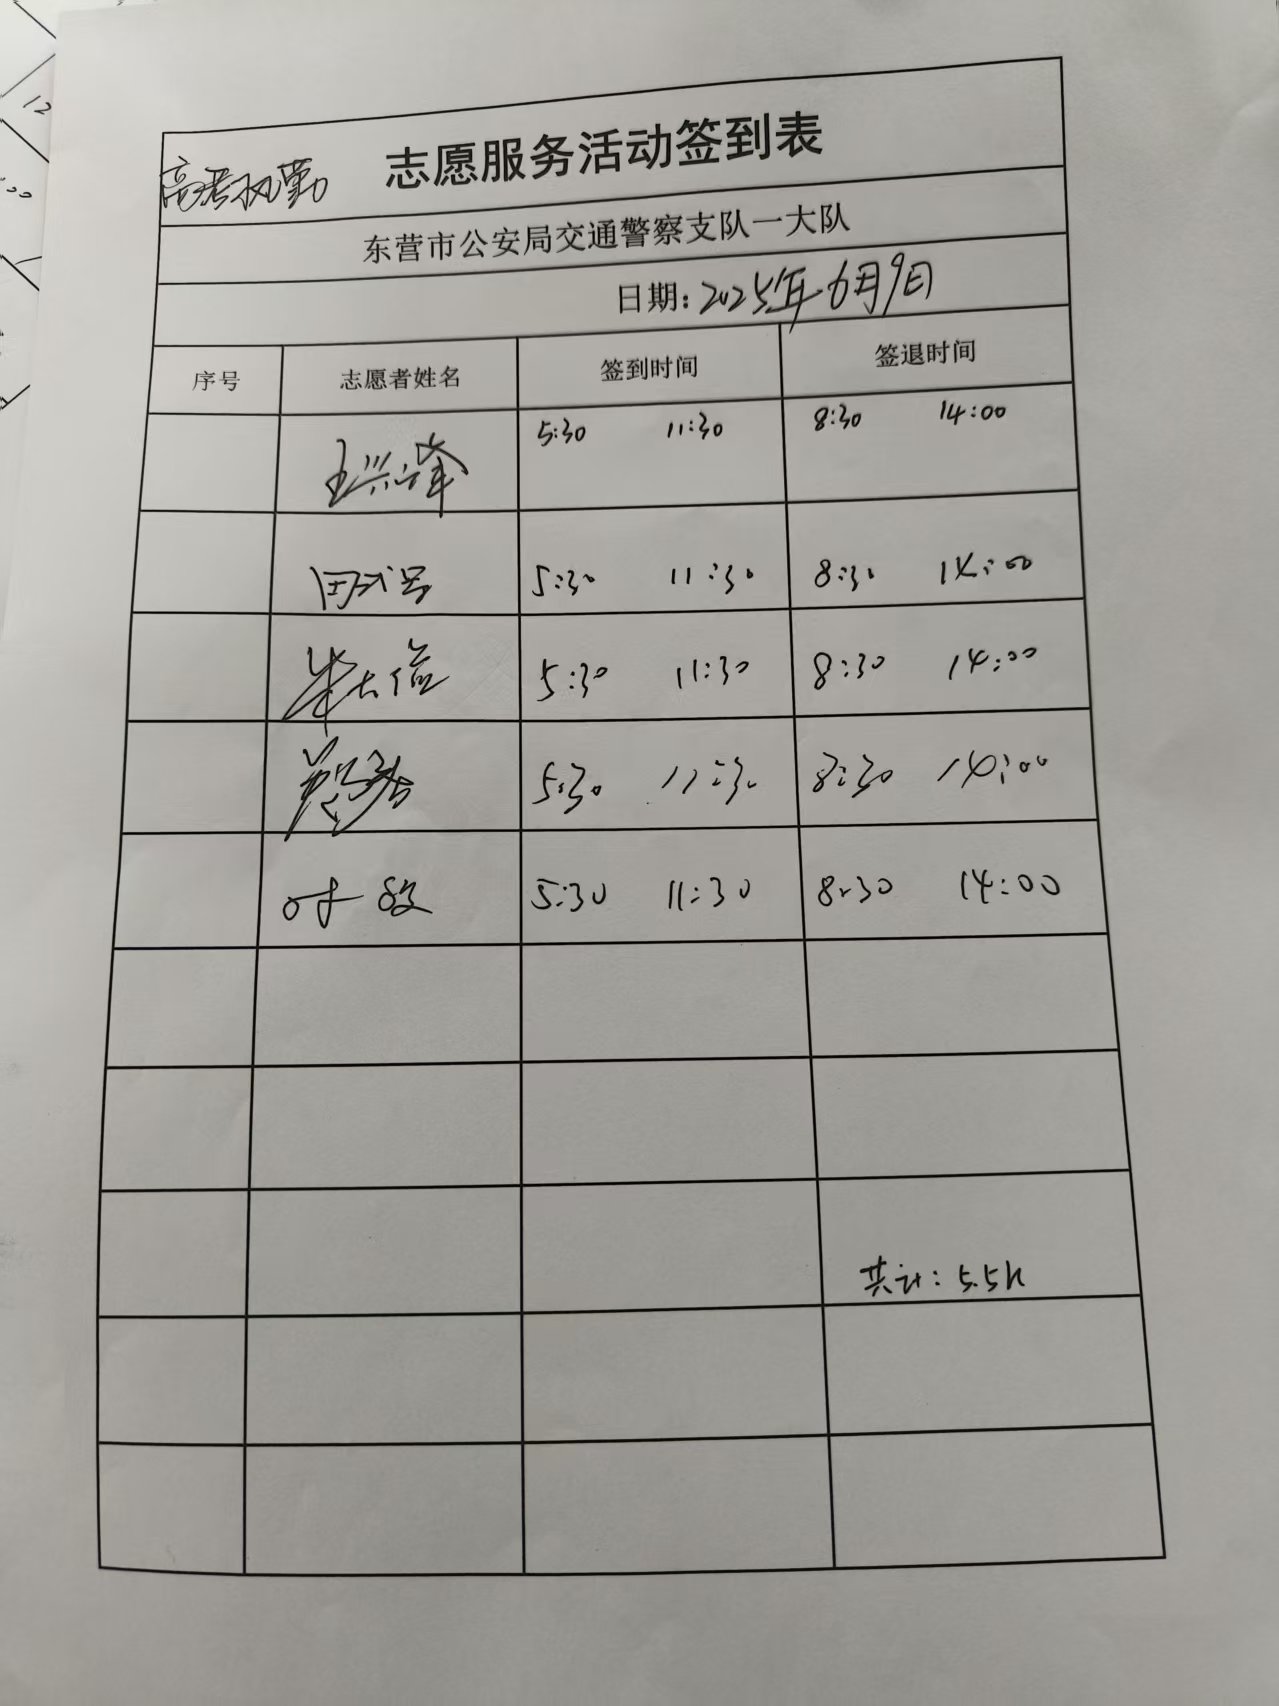 12
高考执勤 志愿服务活动签到表
东营市公安局交通警察支队一大队
日期: 2025年6月9日
序号 志愿者姓名 签到时间 签退时间
王兴峰 5:30 11:30 8:30 14:00
5:30 11:30 8:30 14:00
5:30 11:30 8:30 14:00
5:30 11:30 8:30 14:00
5:30 11:30 8:30 14:00
共计: 5.5h